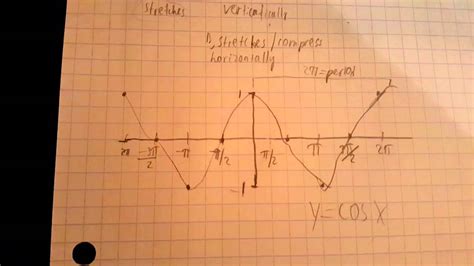 stretches vertically
B, stretches/compress
horizontally
2π=period
1
-π/2 π/2 π 2π
-1
y=cosx